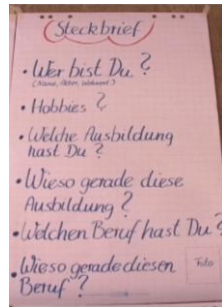 Steckbrief
• Wer bist Du?
(Name, Alter, Wohnort)
• Hobbies?
• Welche Ausbildung
hast Du?
• Wieso gerade diese
Ausbildung?
• Welchen Beruf hast Du?
• Wieso gerade diesen
Beruf?
Foto